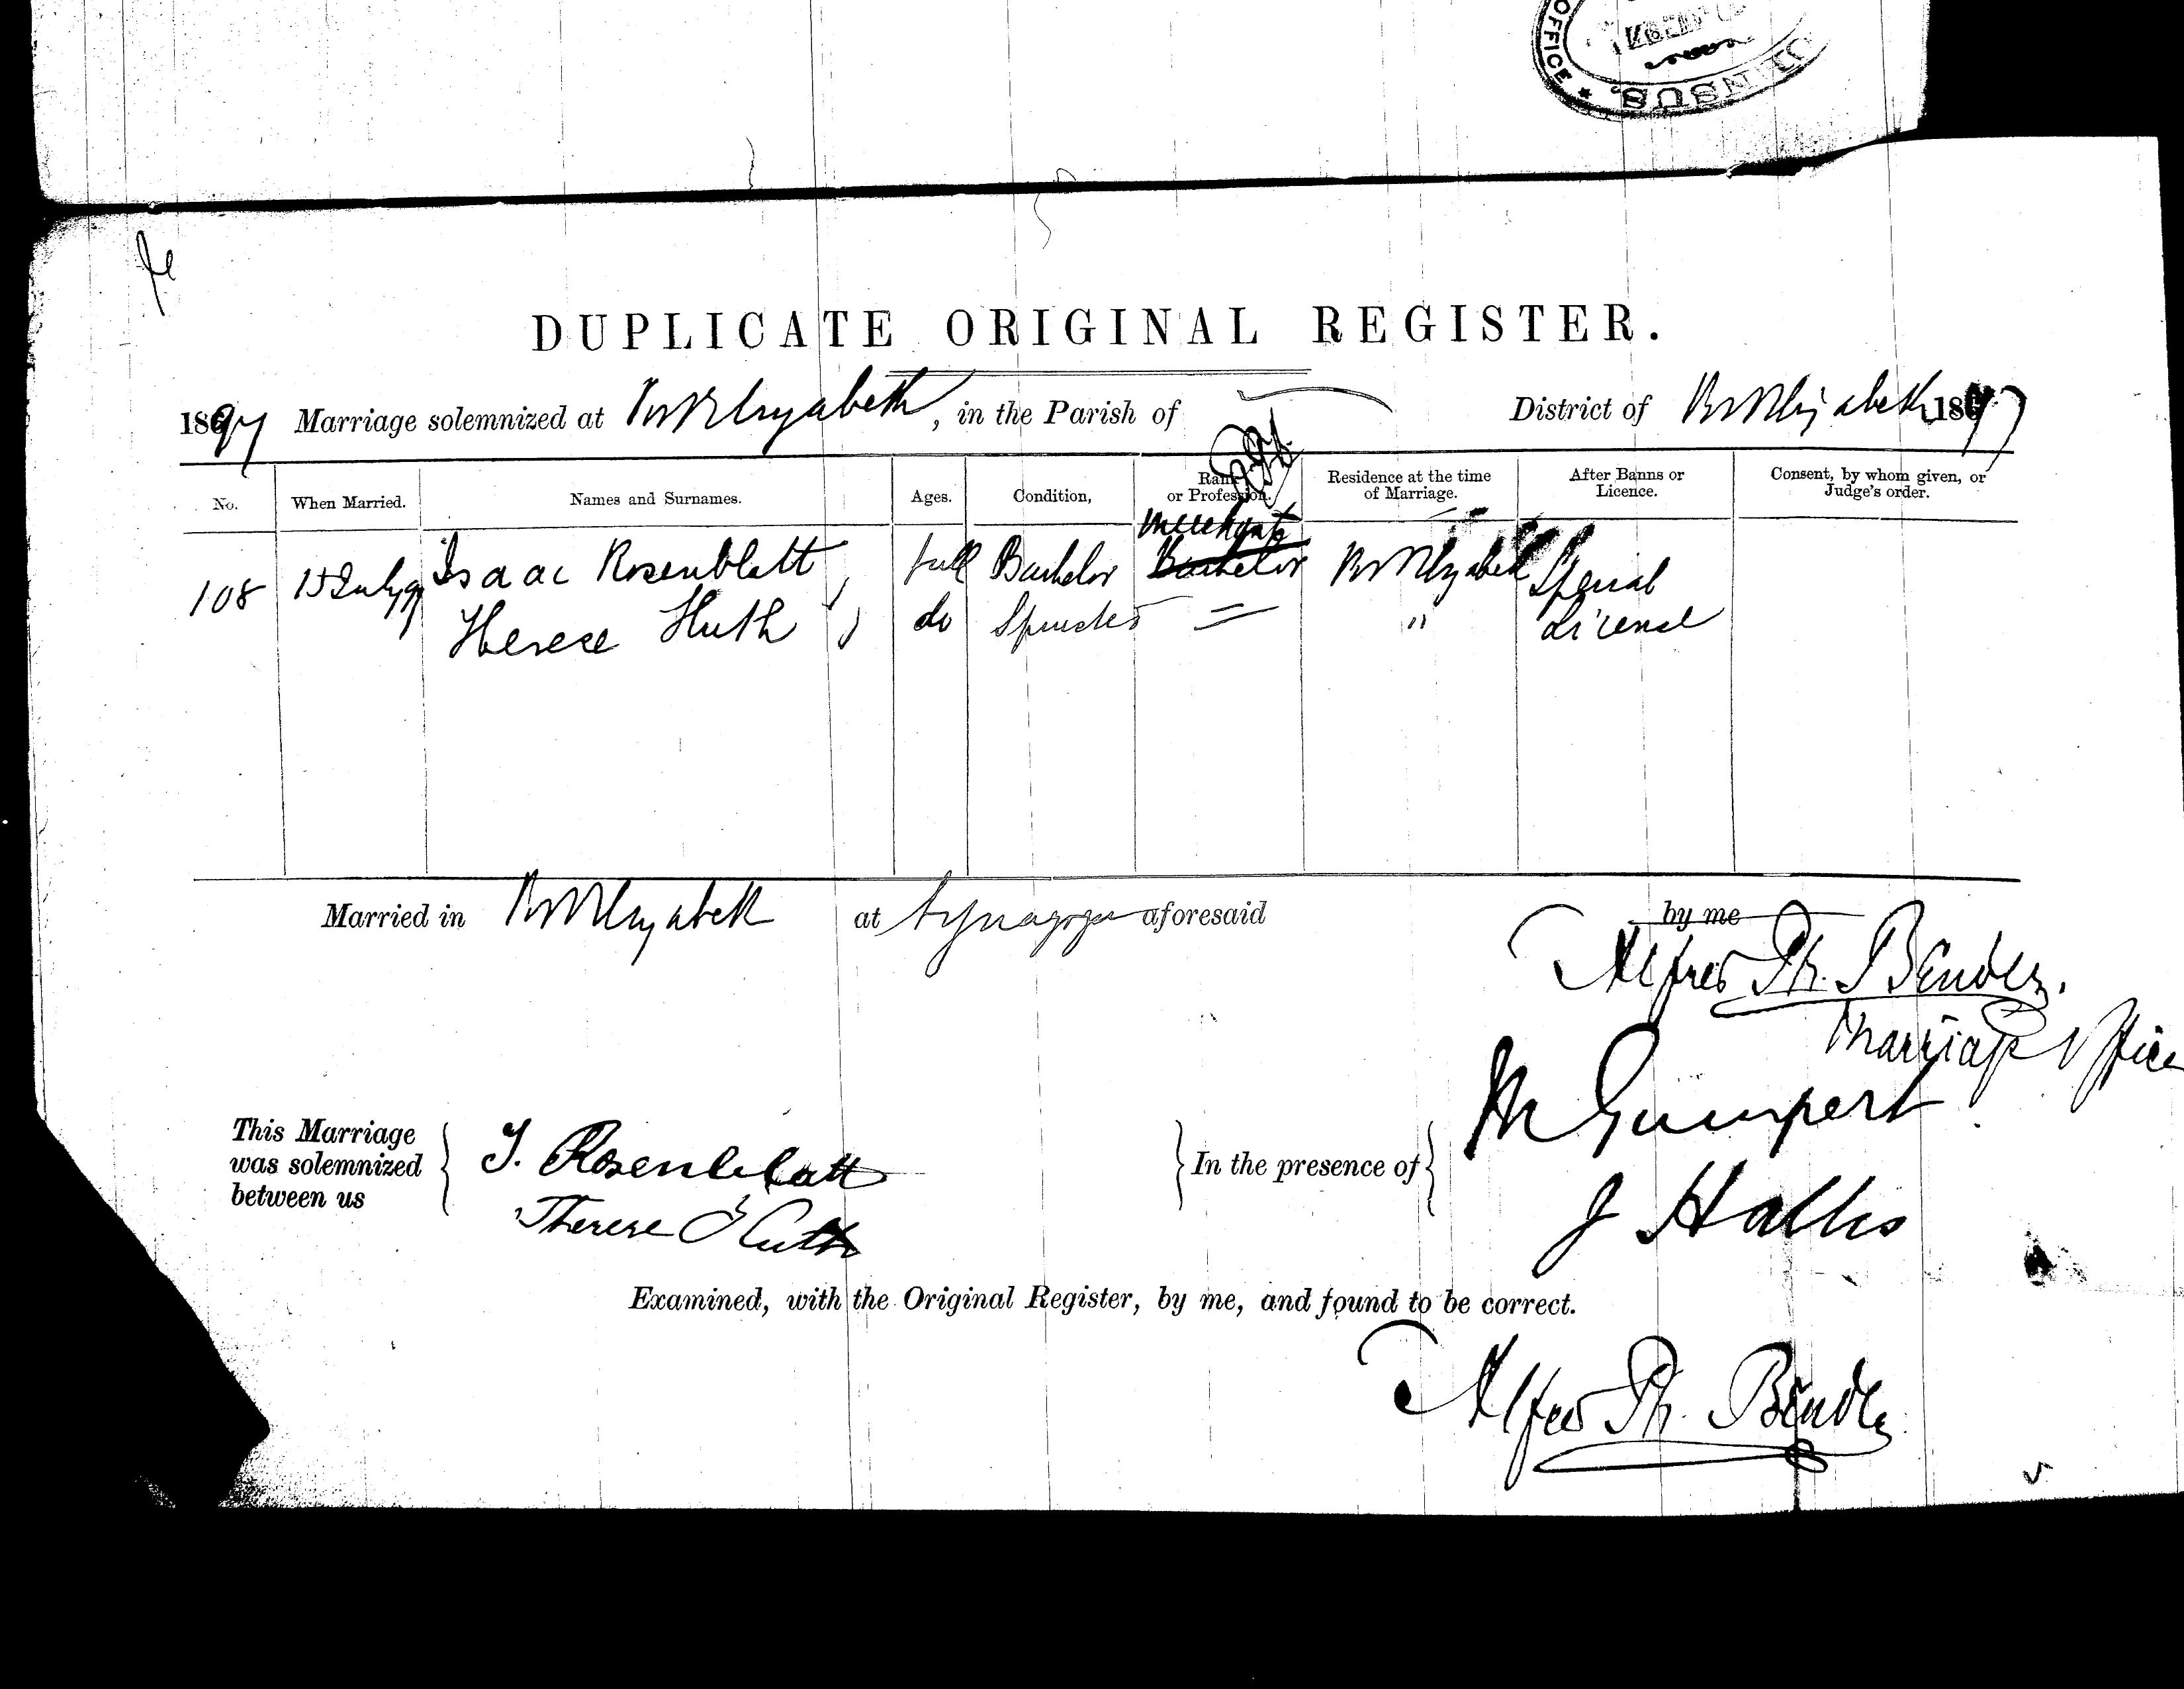 OFFICE *
DUPLICATE ORIGINAL REGISTER.
1897 Marriage solemnized at Port Elizabeth, in the Parish of District of Port Elizabeth 1897
No. When Married. Names and Surnames. Ages. Condition, Rank or Profession. Residence at the time of Marriage. After Banns or Licence. Consent, by whom given, or Judge's order.
merchant
108 15 July 97 Isaac Rosenblatt full Bachelor Bachelor Port Elizabeth Special
Therese Huth do Spinster = " License
Married in Port Elizabeth at Synagogue aforesaid by me
Alfred Ph. Bender.
Marriage Office
M Gumpert
This Marriage was solemnized between us { I. Rosenblatt } In the presence of {
Therese Huth
J Hallis
Examined, with the Original Register, by me, and found to be correct.
Alfred Ph. Bender